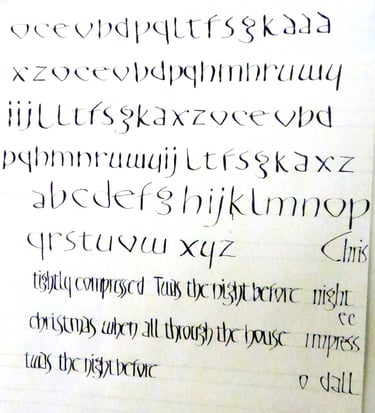 ocevbdpqltfsgkaaa
xzocevbdpqhmnruwy
iijLLtfsgkaxzocevbd
pqhmnruwyijLtfsgkaxz
abcdefghijklmnop
qrstuvw xyz Chris
tightly compressed Twas the night before night
ee
christmas when all through the house impress
twas the night before
o dall